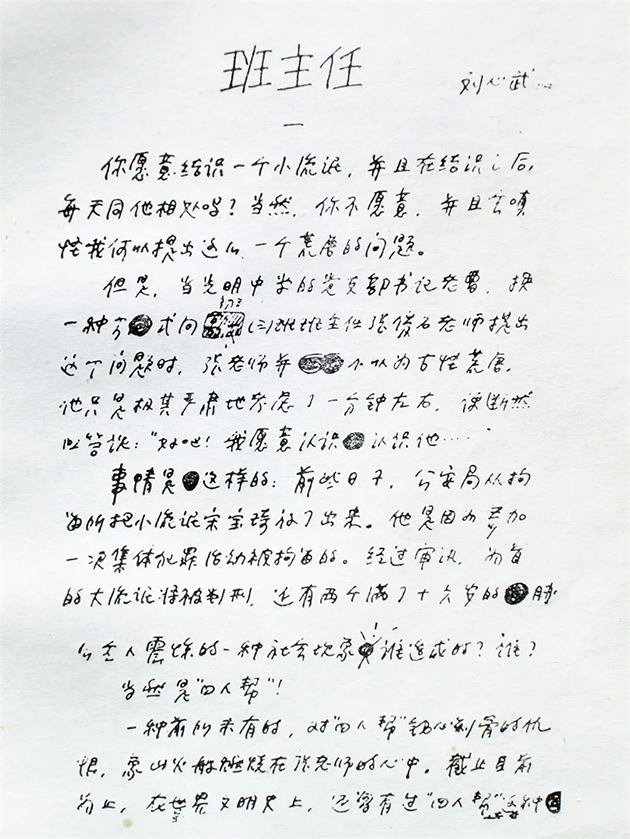 班主任
刘心武
一
你愿意结识一个小流氓，并且在结识之后，
每天同他相处吗？当然，你不愿意，并且会嗔
怪我何以提出这么一个荒唐的问题。
但是，当光明中学的党支部书记老曹，换
初三
一种方式向(三)班班主任张俊石老师提出
这个问题时，张老师并不以为古怪荒唐，
他只是极其严肃地考虑了一分钟左右，便断然
回答说：“好吧！我愿意认识认识他……”
事情是这样的：前些日子，公安局从拘
留所把小流氓宋宝琦放了出来。他是因为参加
一次集体犯罪活动被拘留的。经过审讯，为首
的大流氓将被判刑，还有两个满了十六岁的
公主人震惊的一种社会现象谁造成的？谁？
当然是“四人帮”！
一种前所未有的，对“四人帮”铭心刻骨的仇
恨，象山火般燃烧在张老师的心中。截止目前
为止，在世界文明史上，还曾有过“四人帮”这种